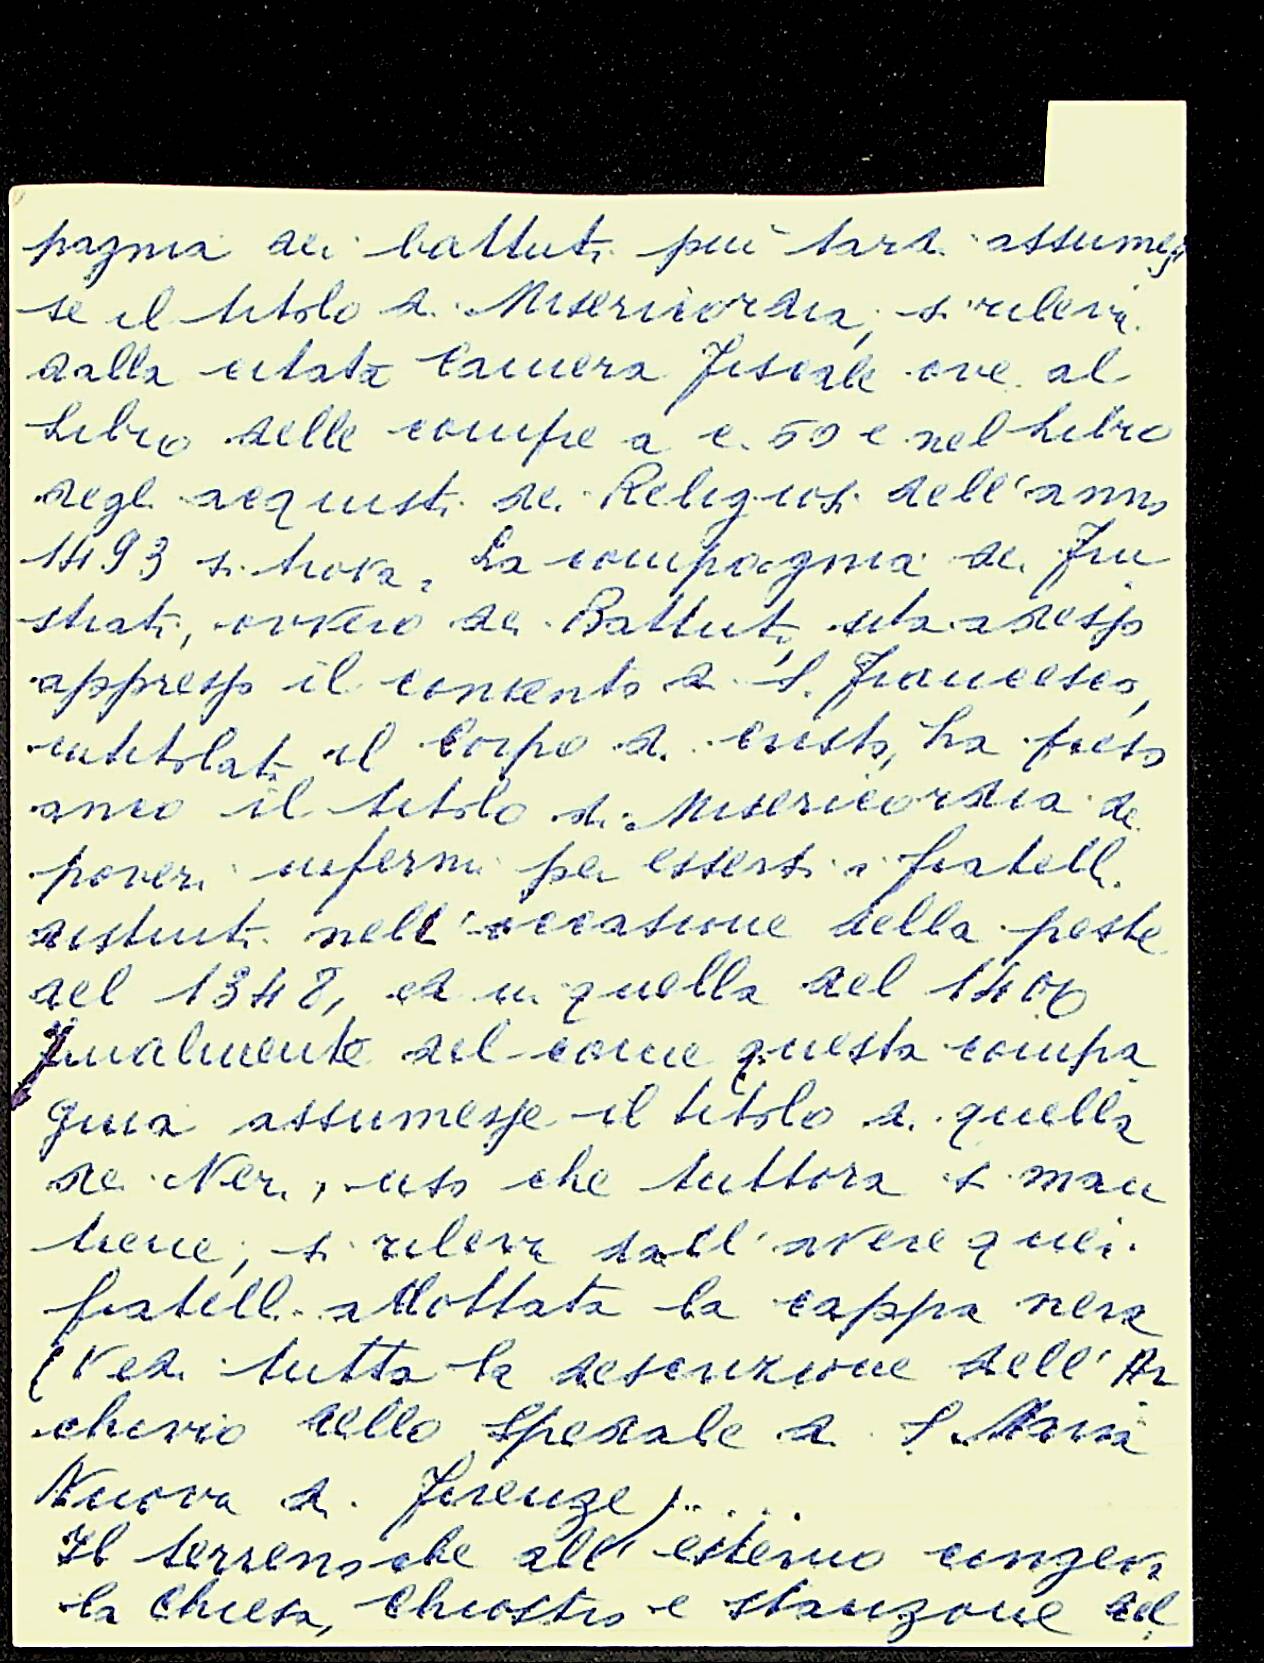 pagnia dei battuti più tardi assumes
se il titolo di Misericordia, si rileva
dalla citata Camera Fiscale ove al
Libro delle compe a c. 50 e nel Libro
degli acquisti dei Religiosi dell'anno
1493 si trova, La compagnia dei Fru
strati, ovvero dei Battuti, sita adesso
appresso il convento di S. Francesco,
intitolati il Corpo di Cristo, ha preso
anco il titolo di Misericordia de
poveri infermi per essersi i fratelli
distinti nell'occasione della peste
del 1348, ed in quella del 1400
Finalmente del come questa compa
gnia assumesse il titolo di quella
dei Neri, uso che tuttora si man
tiene, si rileva dall'avere quei
fratelli adottata la cappa nera
(Vedi tutta la descrizione dell'Ar
chivio dello Spedale di S. Maria
Nuova di Firenze).....
Il terreno che all'esterno cingeva
la Chiesa, Chiostro e stanzone del